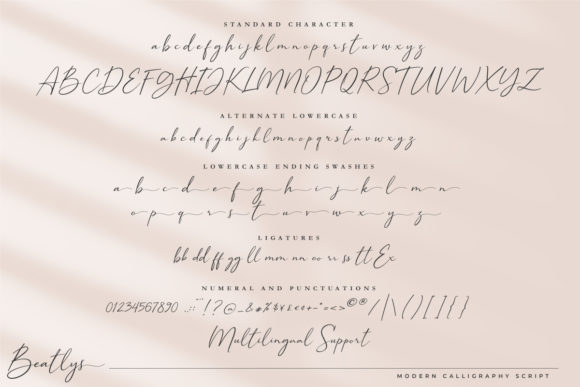 STANDARD CHARACTER
abcdefghijklmnopqrstuvwxyz
ABCDEFGHIJKLMNOPQRSTUVWXYZ
ALTERNATE LOWERCASE
abcdefghijklmnopqrstuvwxyz
LOWERCASE ENDING SWASHES
a b c d e f g h i j k l m n
o p q r s t u v w x y z
LIGATURES
bb dd ff gg ll mm nn oo rr ss tt Ex
NUMERAL AND PUNCTUATIONS
01234567890 !?@_&#%$¥£¢+-°=<>©®/|\()[]{}
Multilingual Support
Beatlys
MODERN CALLIGRAPHY SCRIPT